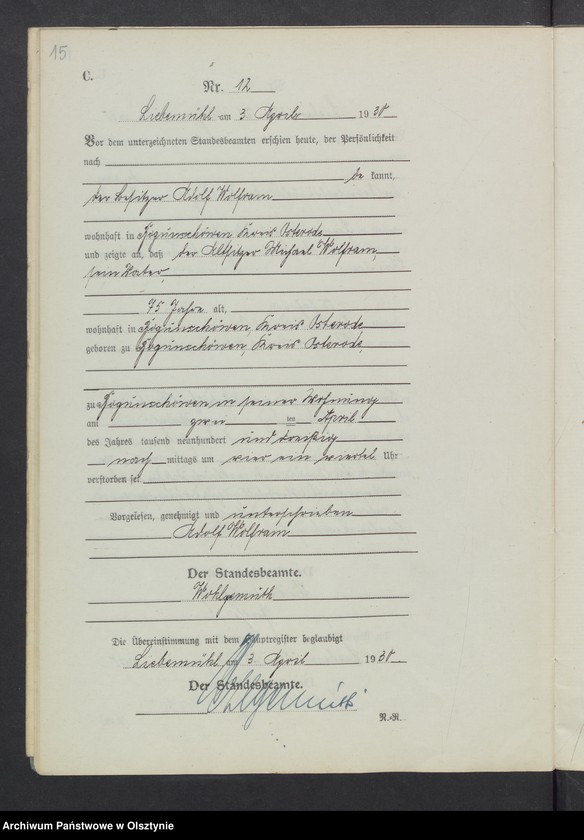 15
C.
Nr. 12
Liebemühl am 3. April 1930
Vor dem unterzeichneten Standesbeamten erschien heute, der Persönlichkeit
nach
be kannt,
der Besitzer Adolf Wolfram
wohnhaft in Kreis Osterode
und zeigte an, daß der Altsitzer Michael Wolfram,
sein Vater,
75 Jahre alt,
wohnhaft in Kreis Osterode
geboren zu Kreis Osterode,
zu in seiner Wohnung
am zwei ten April
des Jahres tausend neunhundert und dreißig
nach mittags um vier ein viertel Uhr
verstorben sei.
Vorgelesen, genehmigt und unterschrieben
Adolf Wolfram
Der Standesbeamte.
Wohlgemuth
Die Übereinstimmung mit dem Hauptregister beglaubigt
Liebemühl am 3. April 1930
Der Standesbeamte.
Wohlgemuth
N.-R.
Archiwum Państwowe w Olsztynie